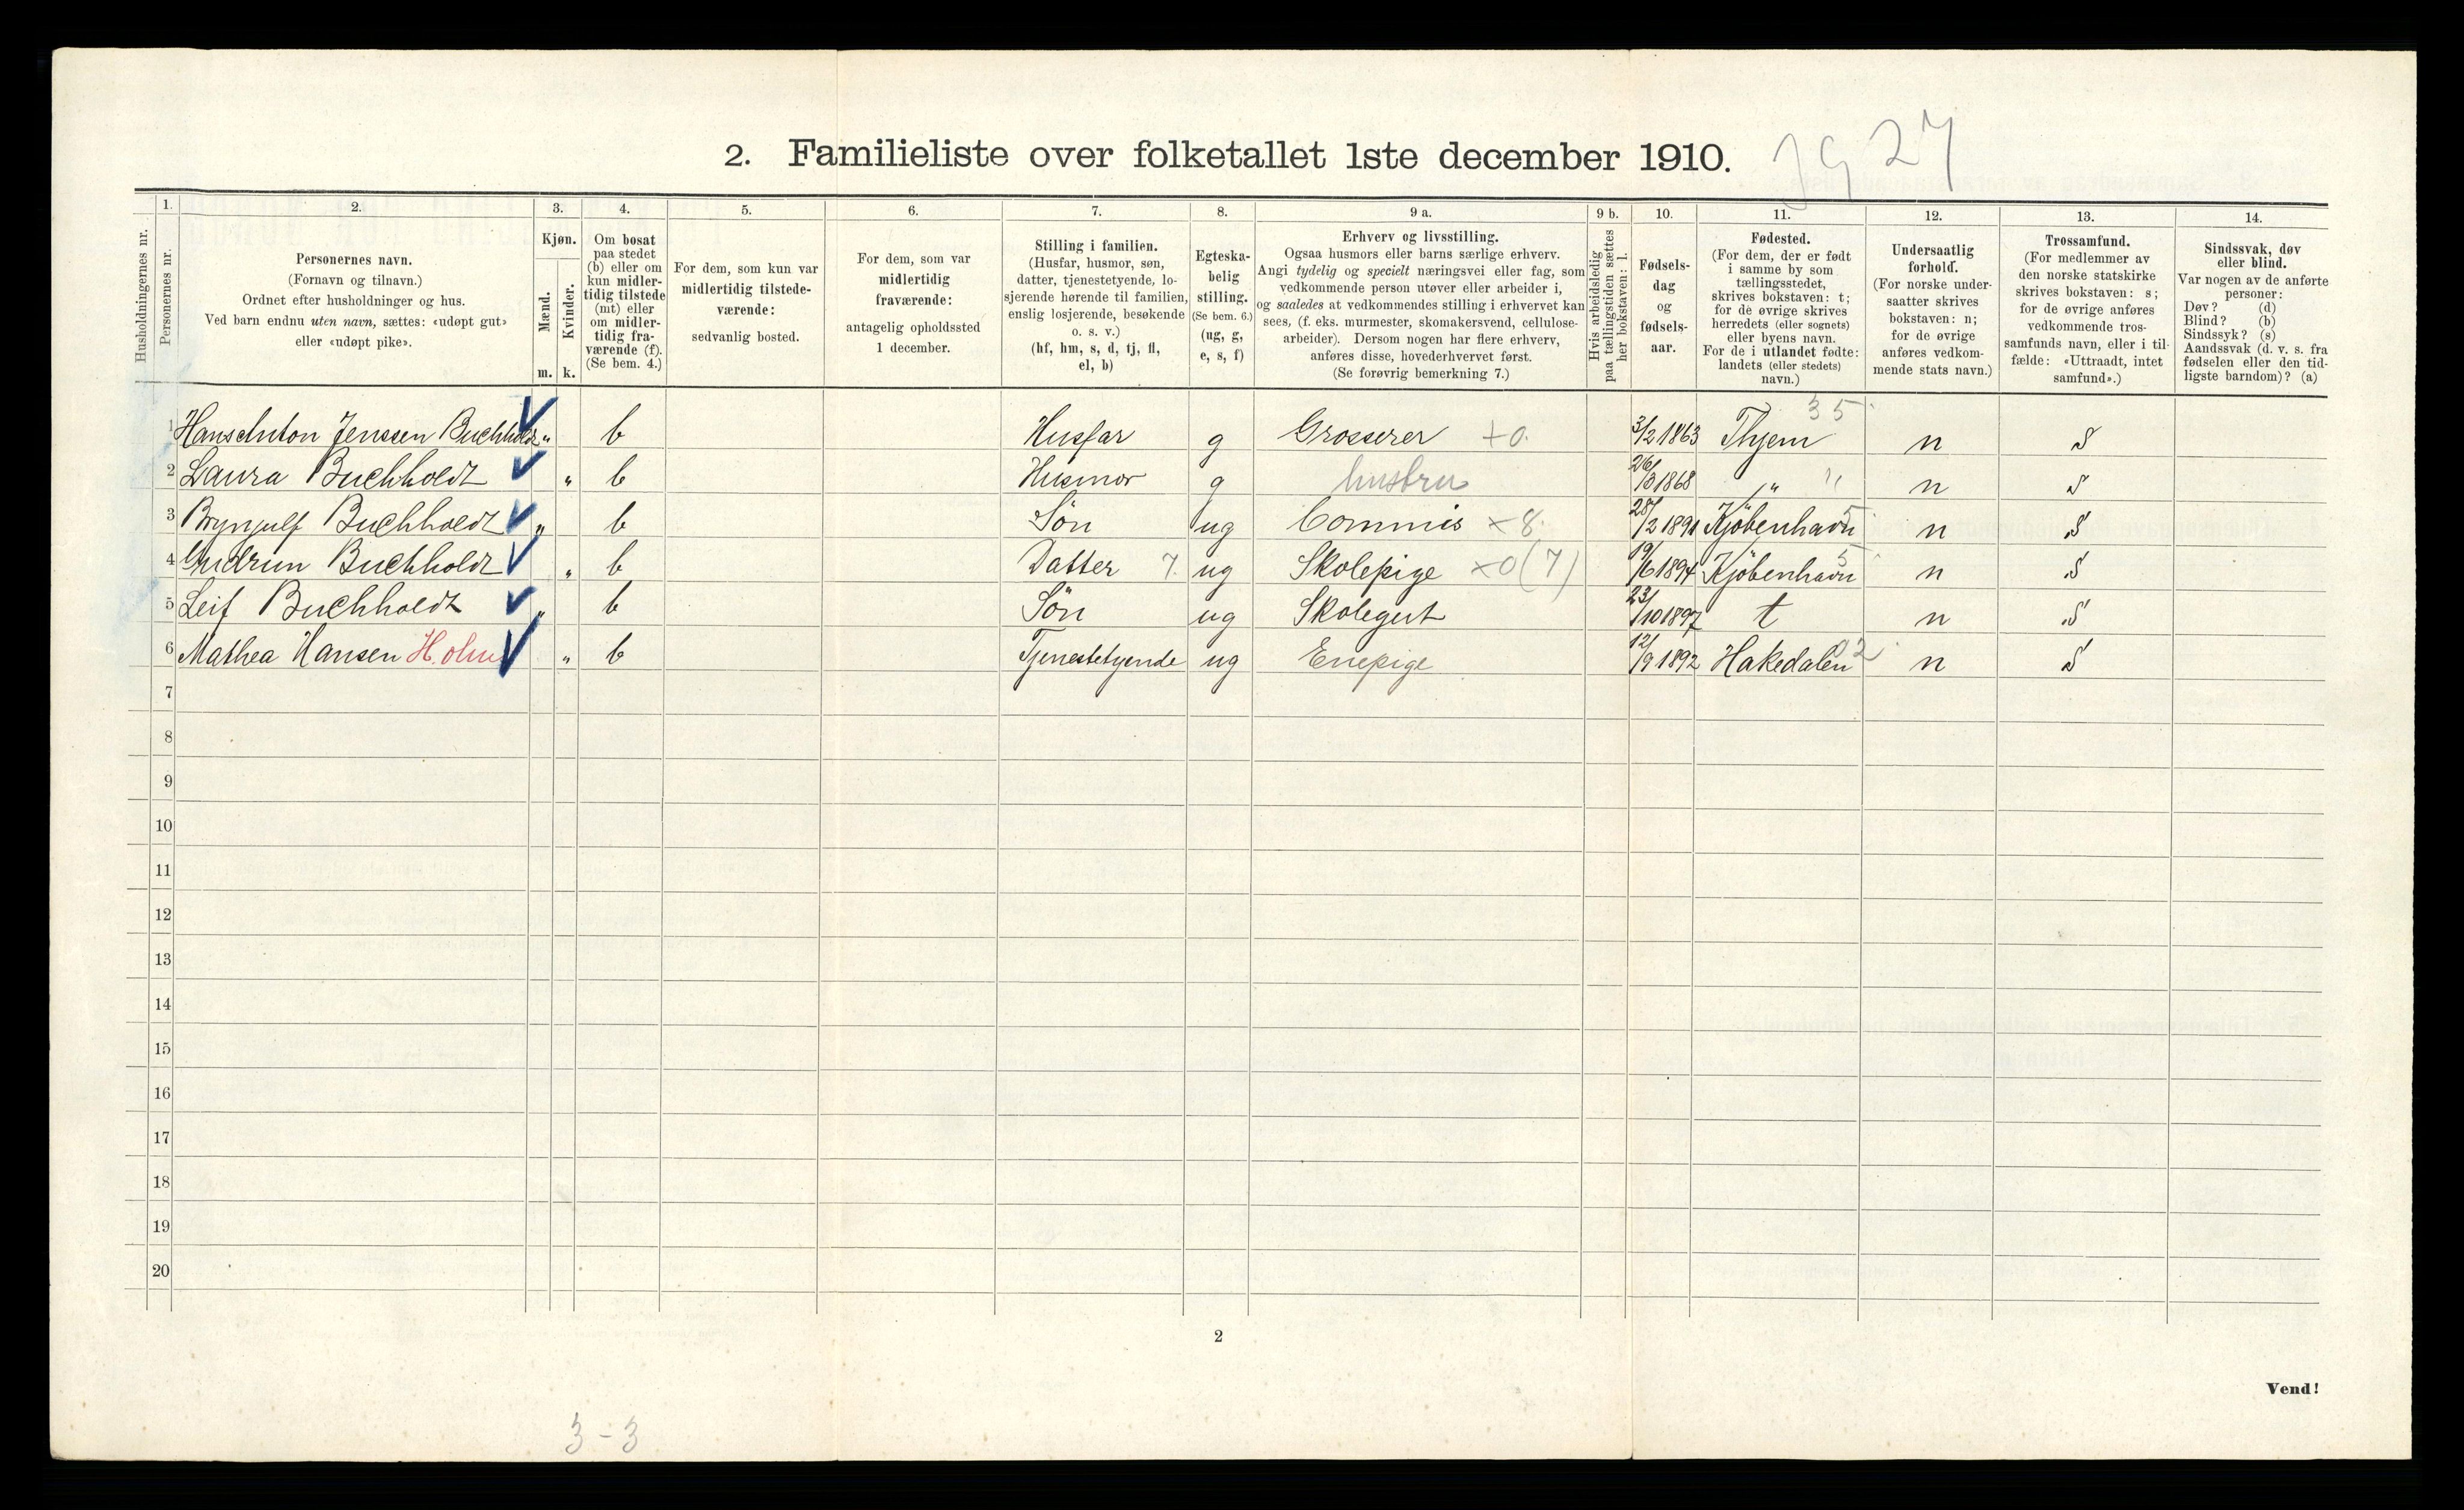 2. Familieliste over folketallet 1ste december 1910.
Husholdningernes nr.
1. Personernes nr.
2. Personernes navn.
(Fornavn og tilnavn.)
Ordnet efter husholdninger og hus.
Ved barn endnu uten navn, sættes: «udøpt gut»
eller «udøpt pike».
3. Kjøn.
Mænd. m.
Kvinder. k.
4. Om bosat
paa stedet
(b) eller om
kun midler-
tidig tilstede
(mt) eller
om midler-
tidig fra-
værende (f).
(Se bem. 4.)
5. For dem, som kun var
midlertidig tilstede-
værende:
sedvanlig bosted.
6. For dem, som var
midlertidig
fraværende:
antagelig opholdssted
1 december.
7. Stilling i familien.
(Husfar, husmor, søn,
datter, tjenestetyende, lo-
sjerende hørende til familien,
enslig losjerende, besøkende
o. s. v.)
(hf, hm, s, d, tj, fl,
el, b)
8. Egteska-
belig
stilling.
(Se bem. 6.)
(ug, g,
e, s, f)
9 a. Erhverv og livsstilling.
Ogsaa husmors eller barns særlige erhverv.
Angi tydelig og specielt næringsvei eller fag, som
vedkommende person utøver eller arbeider i,
og saaledes at vedkommendes stilling i erhvervet kan
sees, (f. eks. murmester, skomakersvend, cellulose-
arbeider). Dersom nogen har flere erhverv,
anføres disse, hovederhvervet først.
(Se forøvrig bemerkning 7.)
9 b. Hvis arbeidsledig
paa tællingstiden sættes
her bokstaven: l.
10. Fødsels-
dag
og
fødsels-
aar.
11. Fødested.
(For dem, der er født
i samme by som
tællingsstedet,
skrives bokstaven: t;
for de øvrige skrives
herredets (eller sognets)
eller byens navn.
For de i utlandet fødte:
landets (eller stedets)
navn.)
12. Undersaatlig
forhold.
(For norske under-
saatter skrives
bokstaven: n;
for de øvrige
anføres vedkom-
mende stats navn.)
13. Trossamfund.
(For medlemmer av
den norske statskirke
skrives bokstaven: s;
for de øvrige anføres
vedkommende tros-
samfunds navn, eller i til-
fælde: «Uttraadt, intet
samfund».)
14. Sindssvak, døv
eller blind.
Var nogen av de anførte
personer:
Døv? (d)
Blind? (b)
Sindssyk? (s)
Aandssvak (d. v. s. fra
fødselen eller den tid-
ligste barndom)? (a)
35
1 Hans Anton Jenssen Buchholdt " b Husfar g Grosserer +0. 3/2 1863 Thjem n S
2 Laura Buchholdt " b Husmor g hustru 1868 " " n S
3 Brynjulf Buchholdt " b Søn ug Commis ×8. 28/2 1891 Kjøbenhavn 5 n S
4 Gudrun Buchholdt " b Datter 7. ug Skolepige ×0 (7) 19/6 1894 Kjøbenhavn 5 n S
5 Leif Buchholdt " b Søn ug Skolegut 23/10 1897 t n S
6 Mathea Hansen Holm " b Tjenestetyende ug Enepige 12/9 1892 Hakedalen 02 n S
7
8
9
10
11
12
13
14
15
16
17
18
19
20
2
Vend!
3-3